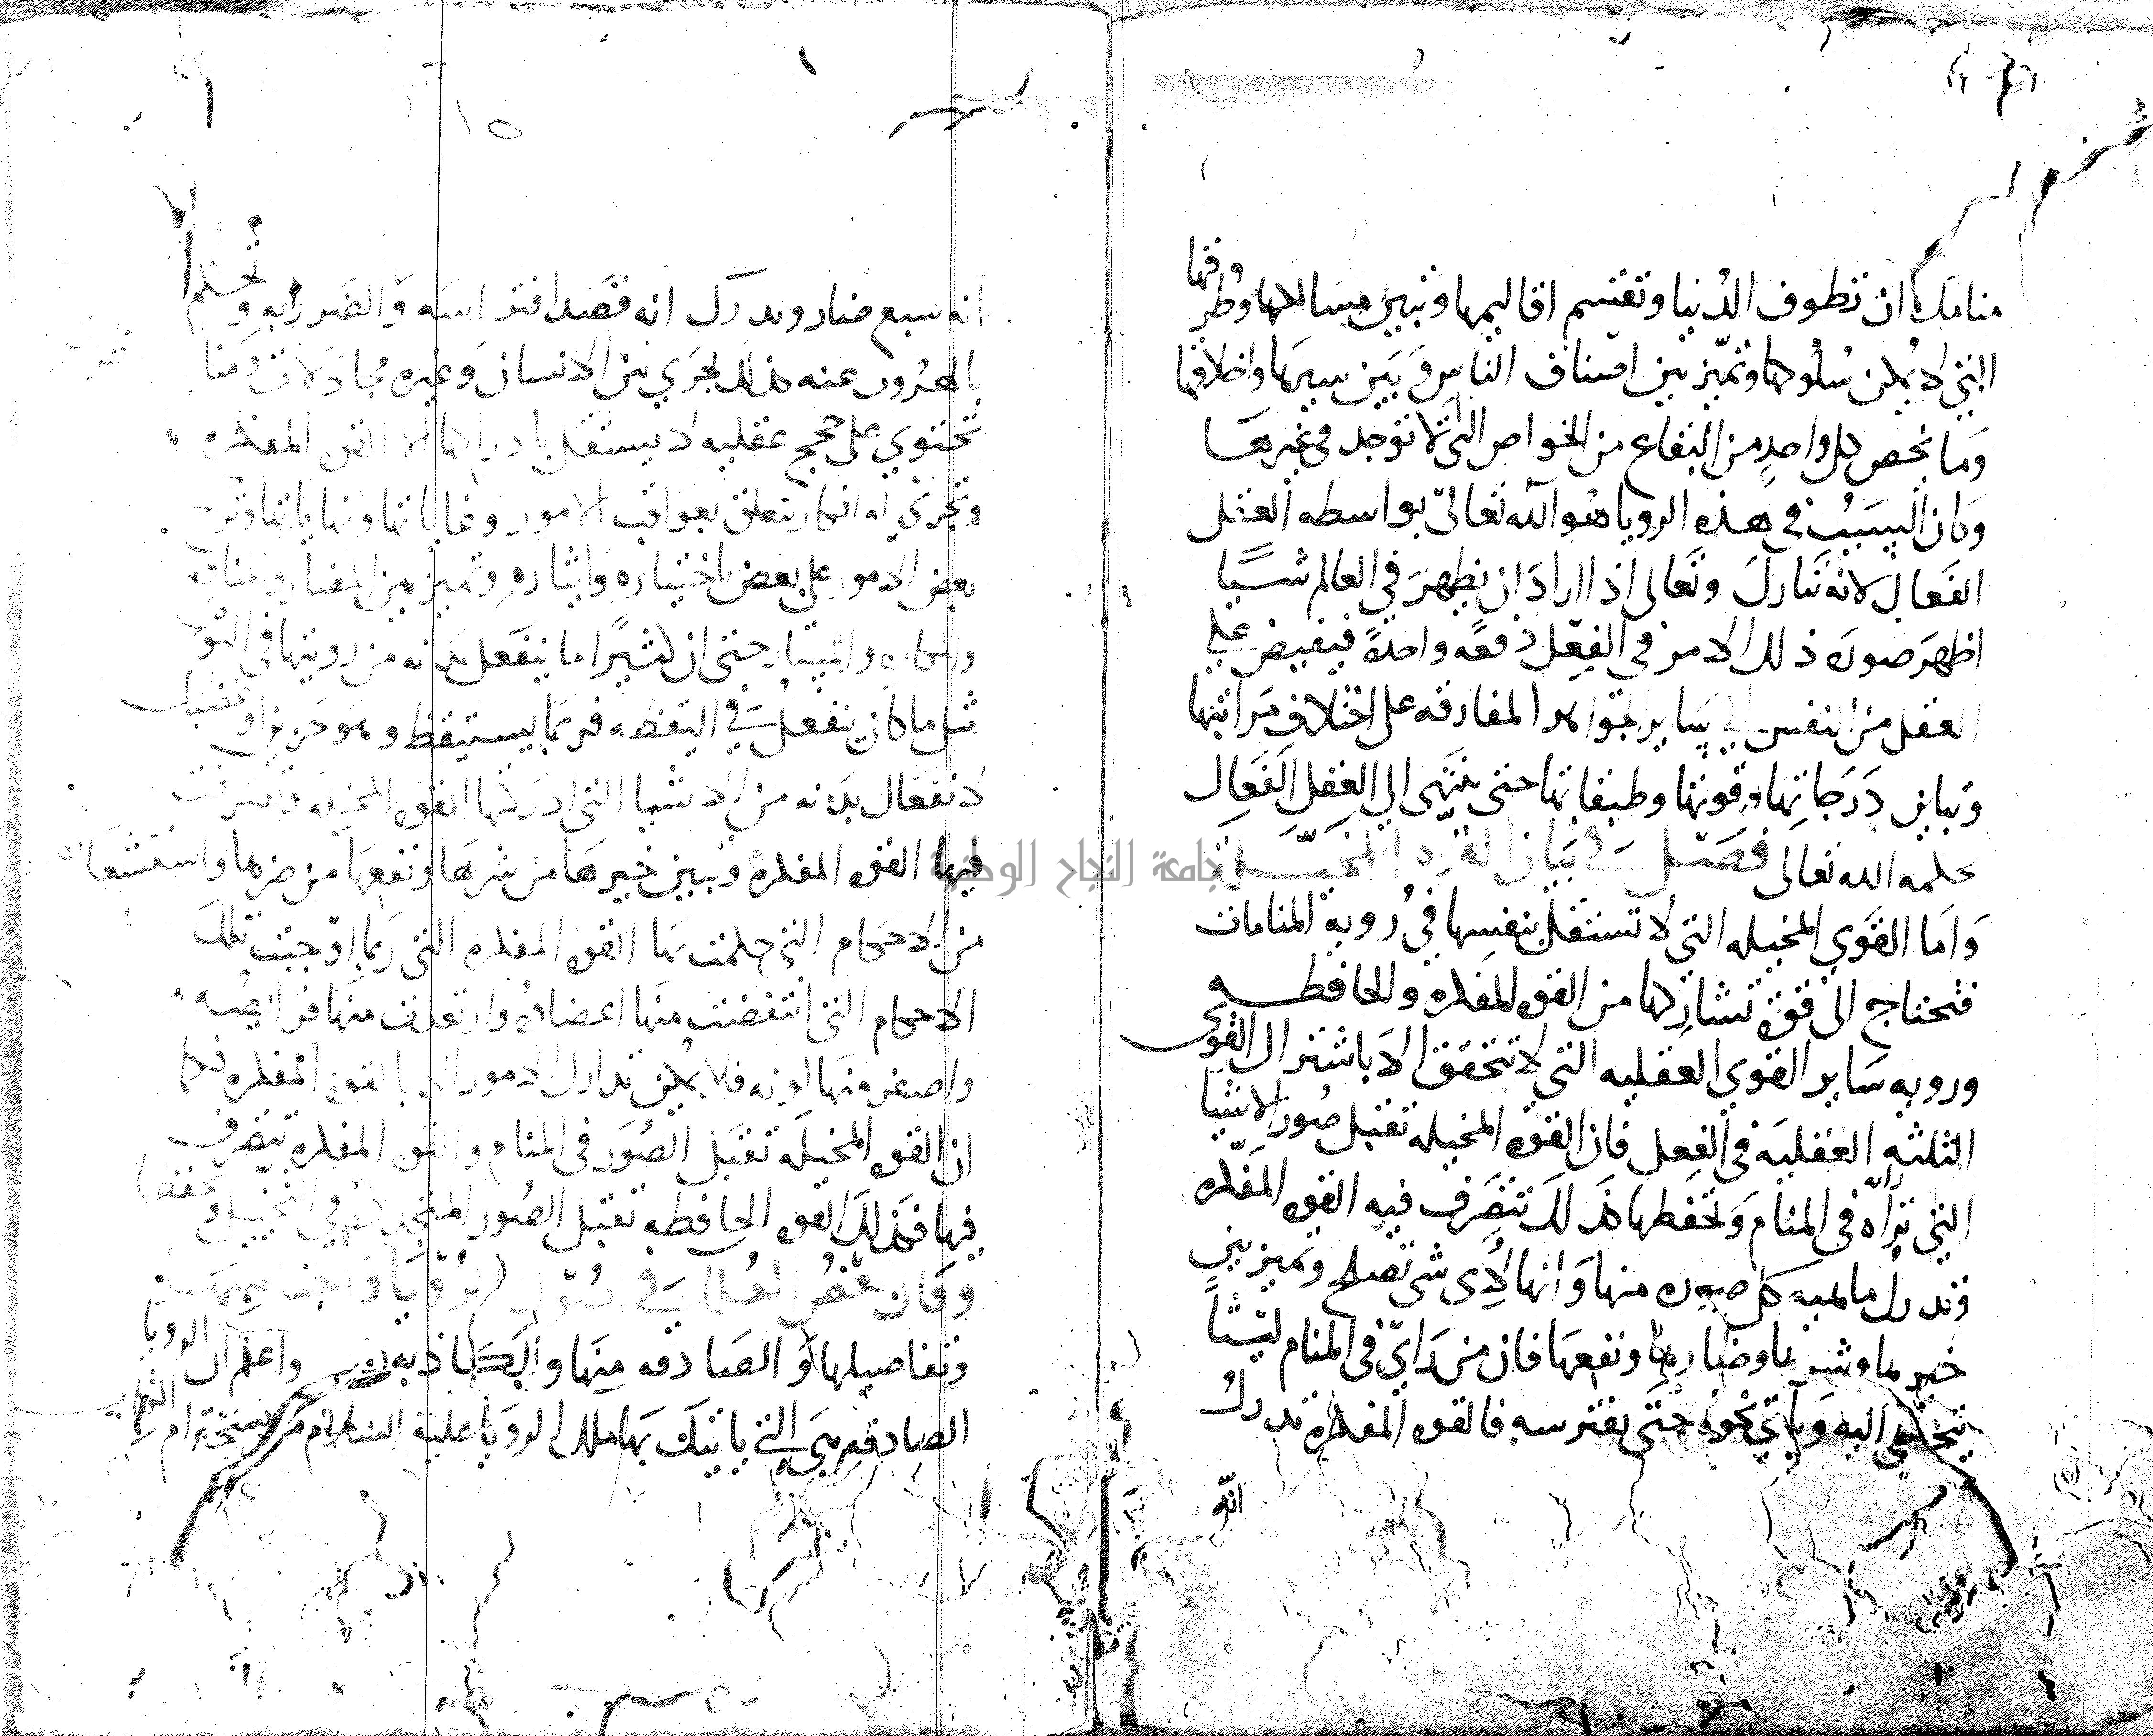 منامك ان تطوف الدنيا وتقتسم اقاليمها وتبين مسالكها وطرقها
التي لا يمكن سلوكها وتميّز بين اصناف الناس وبين سيرها واخلاقها
وما يخص كل واحدٍ من البقاع من الخواص التي لا توجد في غيرها
وكان السبب في هذه الرويا هو الله تعالىّ بواسطه العقل
الفعال لانه تبارك وتعالى اذا اراد ان يظهر في العالم شيًا
اظهر صورة ذلك الامر في الفعل دفعه واحدةً فيفيض على
العقل من النفس الي ساير الجواهر المفارقه على اختلاف مراتبها
وتباين درجاتها وقوتها وطبقاتها حتى ينتهى الي العقل الفعال
علمه الله تعالى فصل في بيان القوى المخيله
واما القوي المخيله التي لا تستقل بنفسها في روية المنامات
فتحتاج الى قوة تشاركها من القوه المفكره والحافظه
ورويه ساير القوي العقليه التي لا تتحقق الا باشتراك القوى
الثلثه العقليه في الفعل فان القوه المخيله تقبل صور الاشيا
التي تراه في المنام وتحفظها كذلك تتصرف فيه القوه المفكره
وتدرك ماهيه كل صوره منها وانها لأي شى تصلح وتميز بين
خيرها وشرها وضارها ونفعها فان من رايّ في المنام ليثًا
يتخطي اليه وياتي نحوه حتى يفترسه فالقوه المفكره تدرك
انّه
١٥
انه سبع ضار وتدرك انه قصد افتراسه والضرر به وتحكم
بالهروب عنه كذلك يجري بين الانسان وغيره مجادلات ومنا
تحتوي على حجج عقليه لا يستقل بادراكها الا القوه المفكره
وتجري له افكار يتعلق بعواقب الامور وغاياتها ونهاياتها
بعض الامور على بعض باختياره وايثاره وتميز بين المضار والمنافع
والمكاره والمسار حتى ان كثيرًا ما ينفعل بدنه من رويتها في النوم
مثل ما كان ينفعل في اليقظه فربما يستيقظ وهو حزين
لانفعال بدنه من الاشيا التي ادركتها القوه المخيله وتصرفت
فيها القوه المفكره وتبين خيرها من شرها ونفعها من ضرها
من الاحكام التي حكمت بها القوه المفكره التي ربما اوجبت تلك
الاحكام التي انتفضت منها اعضاوه وارتعدت منها فرايصه
واصفر منها لونه فلا يمكن تدارك الامور الا بالقوه المفكره فكما
ان القوه المخيله تقبل الصور في المنام والقوه المفكره تتصرف
فيها فكذلك القوه الحافظه تقبل الصور
وتفاصيلها والصادقه منها والكاذبه واعلم ان الرويا
الصادقه هي التي ياتيك بها ملك الرويا عليه السلام